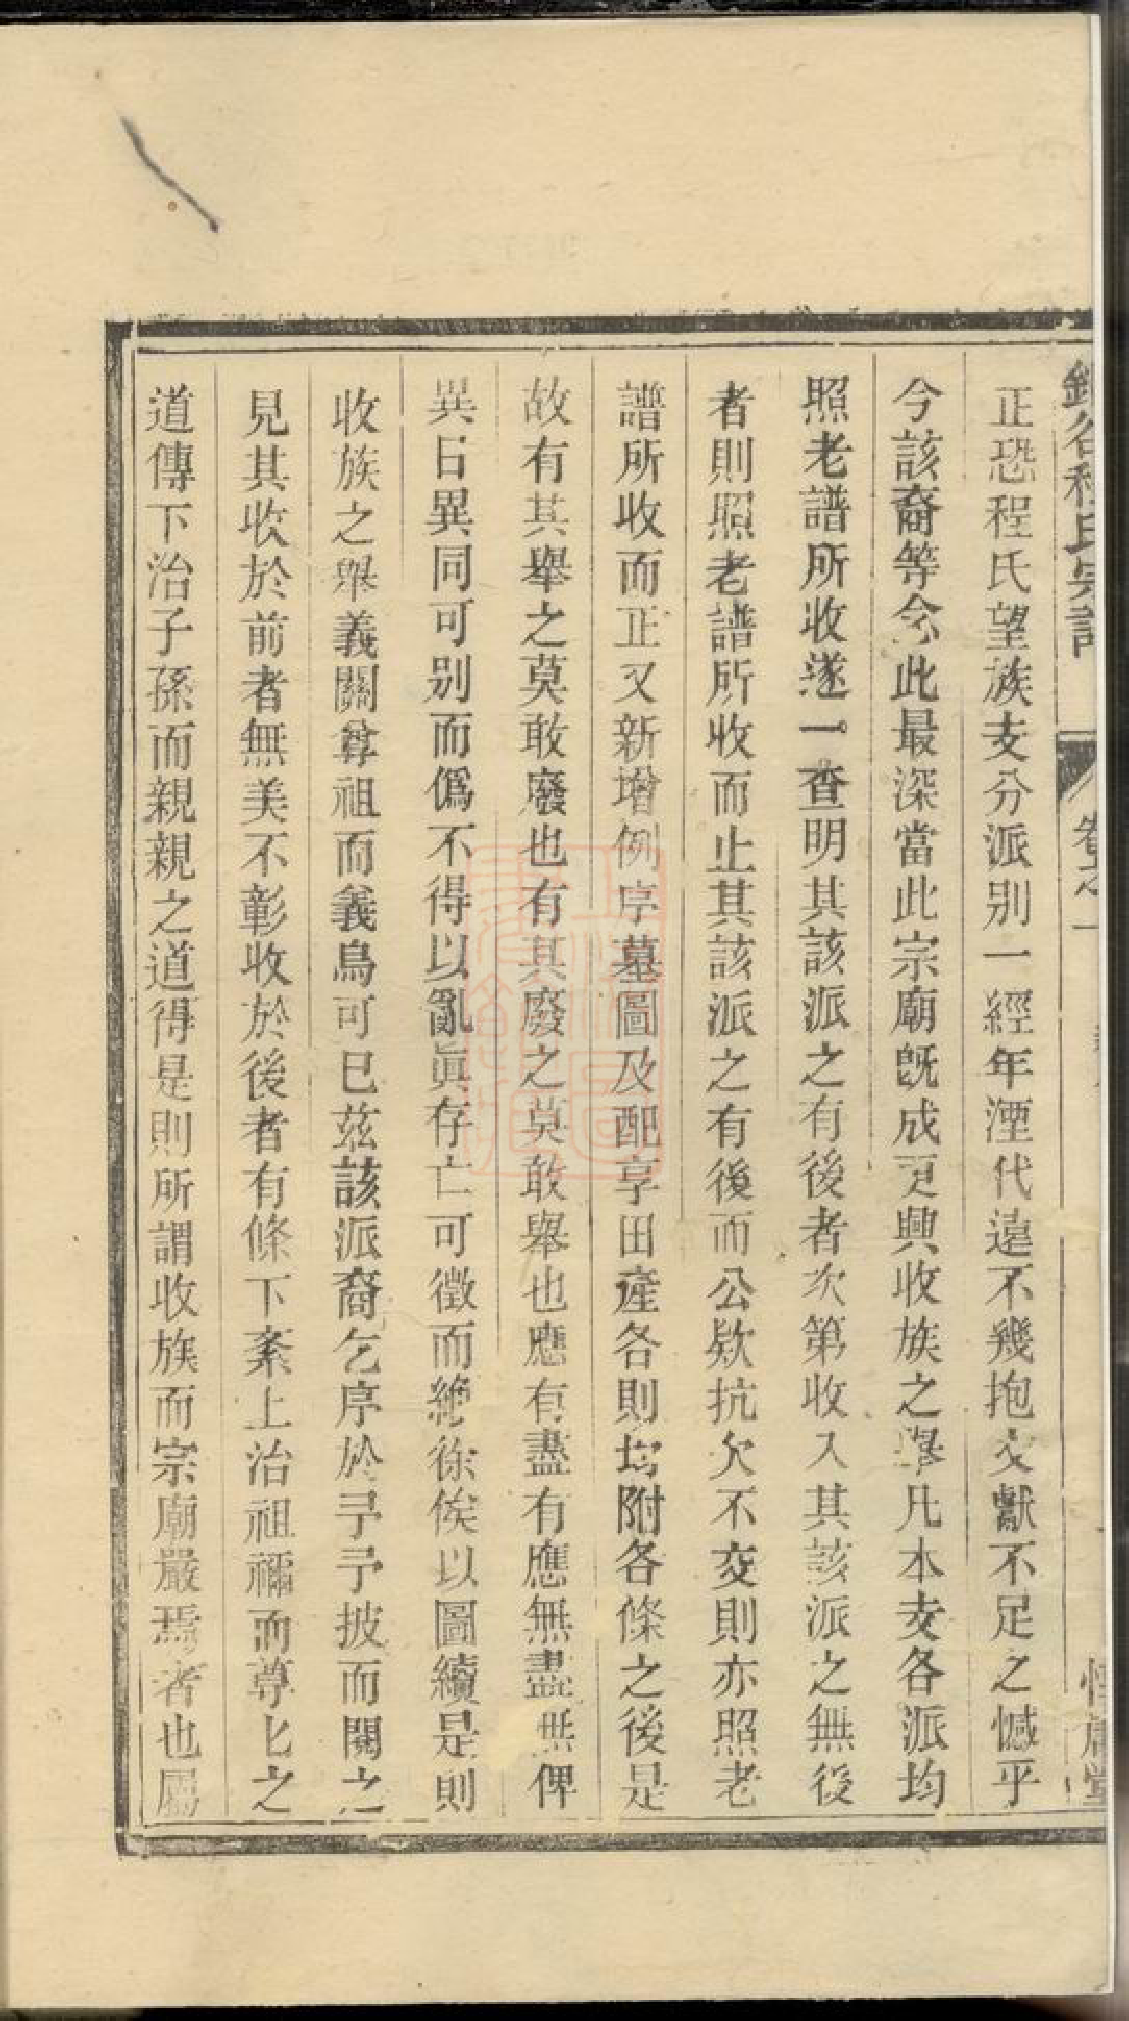 程氏宗譜
卷之一
正恐程氏望族支分派别一經年湮代遠不幾抱文獻不足之憾乎
今該裔等念此最深當此宗廟旣成更興收族之舉凡本支各派均
照老譜所收遂一查明其該派之有後者次第收入其該派之無後
者則照老譜所收而止其該派之有後而公欵抗欠不交則亦照老
譜所收而正又新增例序墓圖及配享田產各則均附各條之後是
故有其舉之莫敢廢也有其廢之莫敢舉也應有盡有應無盡無俾
異日異同可别而僞不得以亂眞存亡可徵而絶徐俟以圖續是則
收族之舉義關尊祖而義烏可已茲該派裔乞序於予予披而閱之
見其收於前者無美不彰收於後者有條下紊上治祖禰而尊尊之
道傳下治子孫而親親之道得是則所謂收族而宗廟嚴焉者也屬